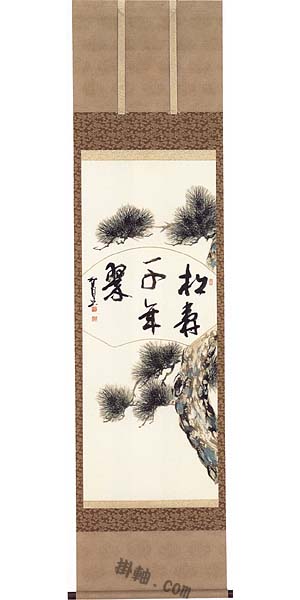 松寿
千年
翠
掛軸.com